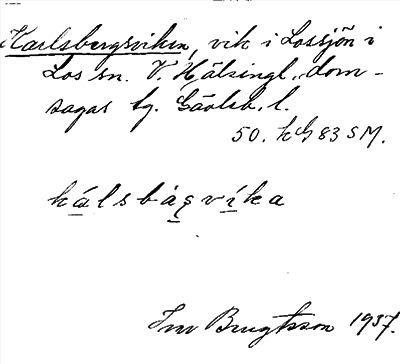 Karlsbergsviken, vik i Lossjön i
Los sn. V. Hälsingl. dom-
sagas tg. Gävleb. l.
50. kG 83 SM.
kálsbàgvíka
Bengtsson 1937.